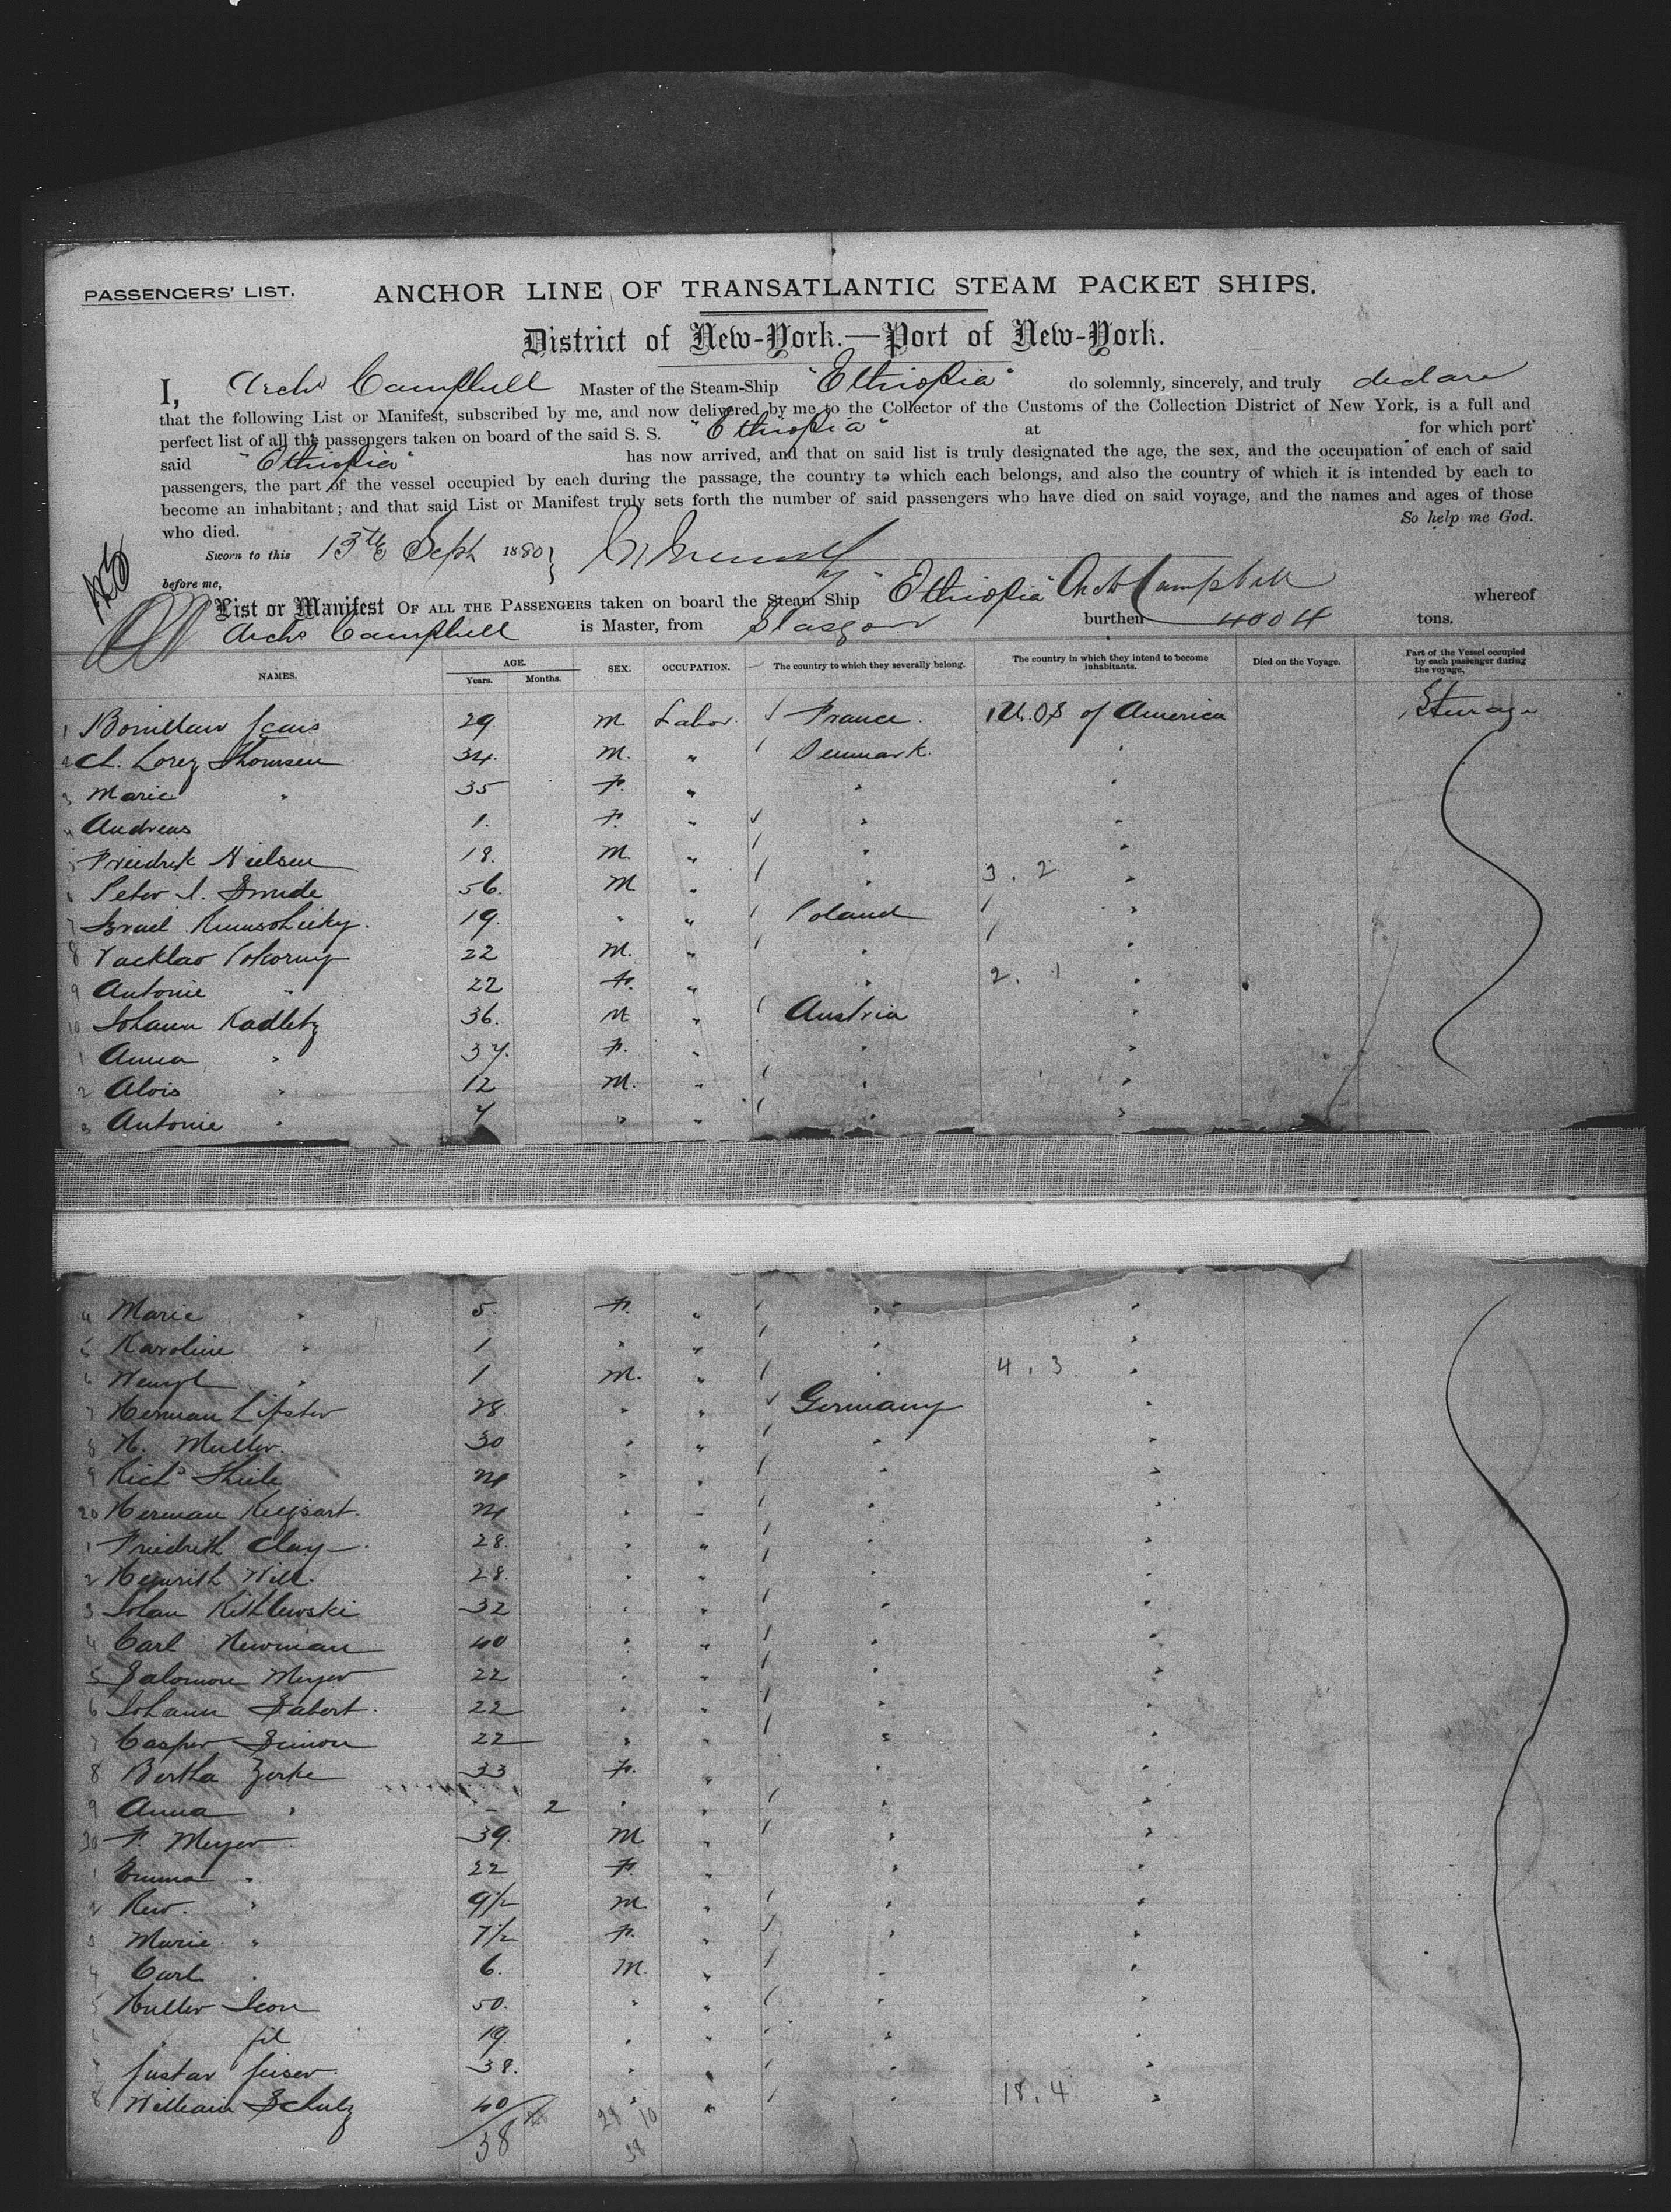 PASSENGERS' LIST.
ANCHOR LINE OF TRANSATLANTIC STEAM PACKET SHIPS.
District of New-York.—Port of New-York.
I, Archd Campbell Master of the Steam-Ship "Ethiopia" do solemnly, sincerely, and truly declare
that the following List or Manifest, subscribed by me, and now delivered by me to the Collector of the Customs of the Collection District of New York, is a full and
perfect list of all the passengers taken on board of the said S. S. "Ethiopia" at for which port
said "Ethiopia" has now arrived, and that on said list is truly designated the age, the sex, and the occupation of each of said
passengers, the part of the vessel occupied by each during the passage, the country to which each belongs, and also the country of which it is intended by each to
become an inhabitant; and that said List or Manifest truly sets forth the number of said passengers who have died on said voyage, and the names and ages of those
who died. So help me God.
Sworn to this 13th Sept 1880
before me,
List or Manifest OF ALL THE PASSENGERS taken on board the Steam Ship "Ethiopia" Archd Campbell whereof
Archd Campbell is Master, from Glasgow burthen 4004 tons.
NAMES. AGE. Years. Months. SEX. OCCUPATION. The country to which they severally belong. The country in which they intend to become inhabitants. Died on the Voyage. Part of the Vessel occupied by each passenger during the voyage.
1 29 M Labor. France. U.OS of America Steerage
2 Ch. Lorez Thomsen 34. M. " Denmark "
3 Marie " 35 F. " " "
4 Andreas 1. F. " " "
5 Friedrik Nielsen 18. M. " " "
6 Peter S. Smide 56. M " " 3. 2 "
7 Israel 19. " " Poland "
8 Vacklav Pokorny 22 M. " " "
9 Antonie " 22 F. " " 2. 1 "
10 Johann Kadletz 36. M " Austria "
1 Anna " 37. F. " " "
2 Alois " 12 M. " " "
3 Antonie " 7 " " " "
4 Marie " 5. F. " " "
5 Karoline " 1 " " " "
6 Wenzl " 1 M. " " 4. 3 "
7 Herman 28. " " Germany "
8 H. Muller. 30 " " " "
9 Richd Thiele 24 " " " "
20 Herman 24 " " " "
1 Friedrith Clay 28. " " " "
2 Heinrith Will. 28. " " " "
3 Johan Kithlewski 32 " " " "
4 Carl Newman 40 " " " "
5 Salomon Meyer 22 " " " "
6 Johann Sabert. 22 " " " "
7 Casper Simon 22 " " " "
8 Bertha Zerke 33 F. " " "
9 Anna " - 2 " " " "
30 F. Meyer 39. M " " "
1 Emma " 22 F. " " "
2 " 9½ M " " "
3 Marie " 7½ F. " " "
4 Carl " 6. M. " " "
5 Huller Leon 50. " " " "
6 " fil 19. " " " "
7 Gustav 38. " " " "
8 William Schulz 40 " " " 18. 4 "
38 28 10
38